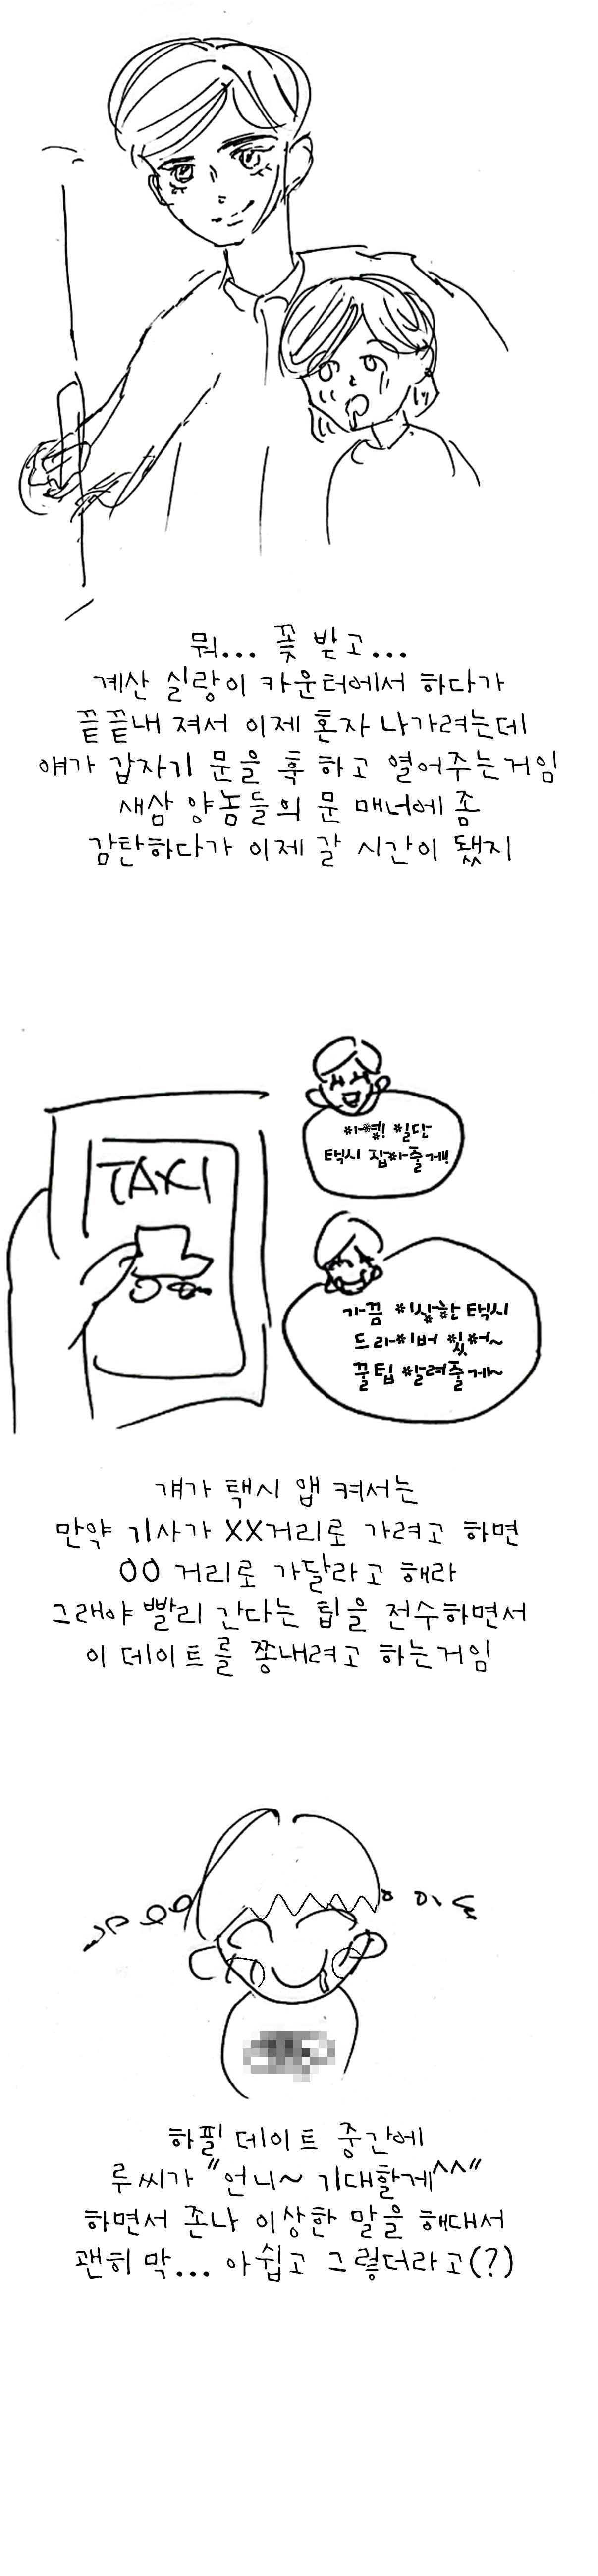 뭐... 꽃 받고...
계산 실랑이 카운터에서 하다가
끝끝내 져서 이제 혼자 나가려는데
얘가 갑자기 문을 훅 하고 열어주는거임
새삼 양놈들의 문 매너에 좀
감탄하다가 이제 갈 시간이 됐지
아옝! 일단
택시 잡아줄게!
TAXI
가끔 이상한 택시
드라이버 있어~
꿀팁 알려줄게~
걔가 택시 앱 켜서는
만약 기사가 XX거리로 가려고 하면
OO 거리로 가달라고 해라
그래야 빨리 간다는 팁을 전수하면서
이 데이트를 쫑내려고 하는거임
하필 데이트 중간에
루씨가 "언니~ 기대할게^^"
하면서 존나 이상한 말을 해대서
괜히 막... 아쉽고 그렇더라고(?)